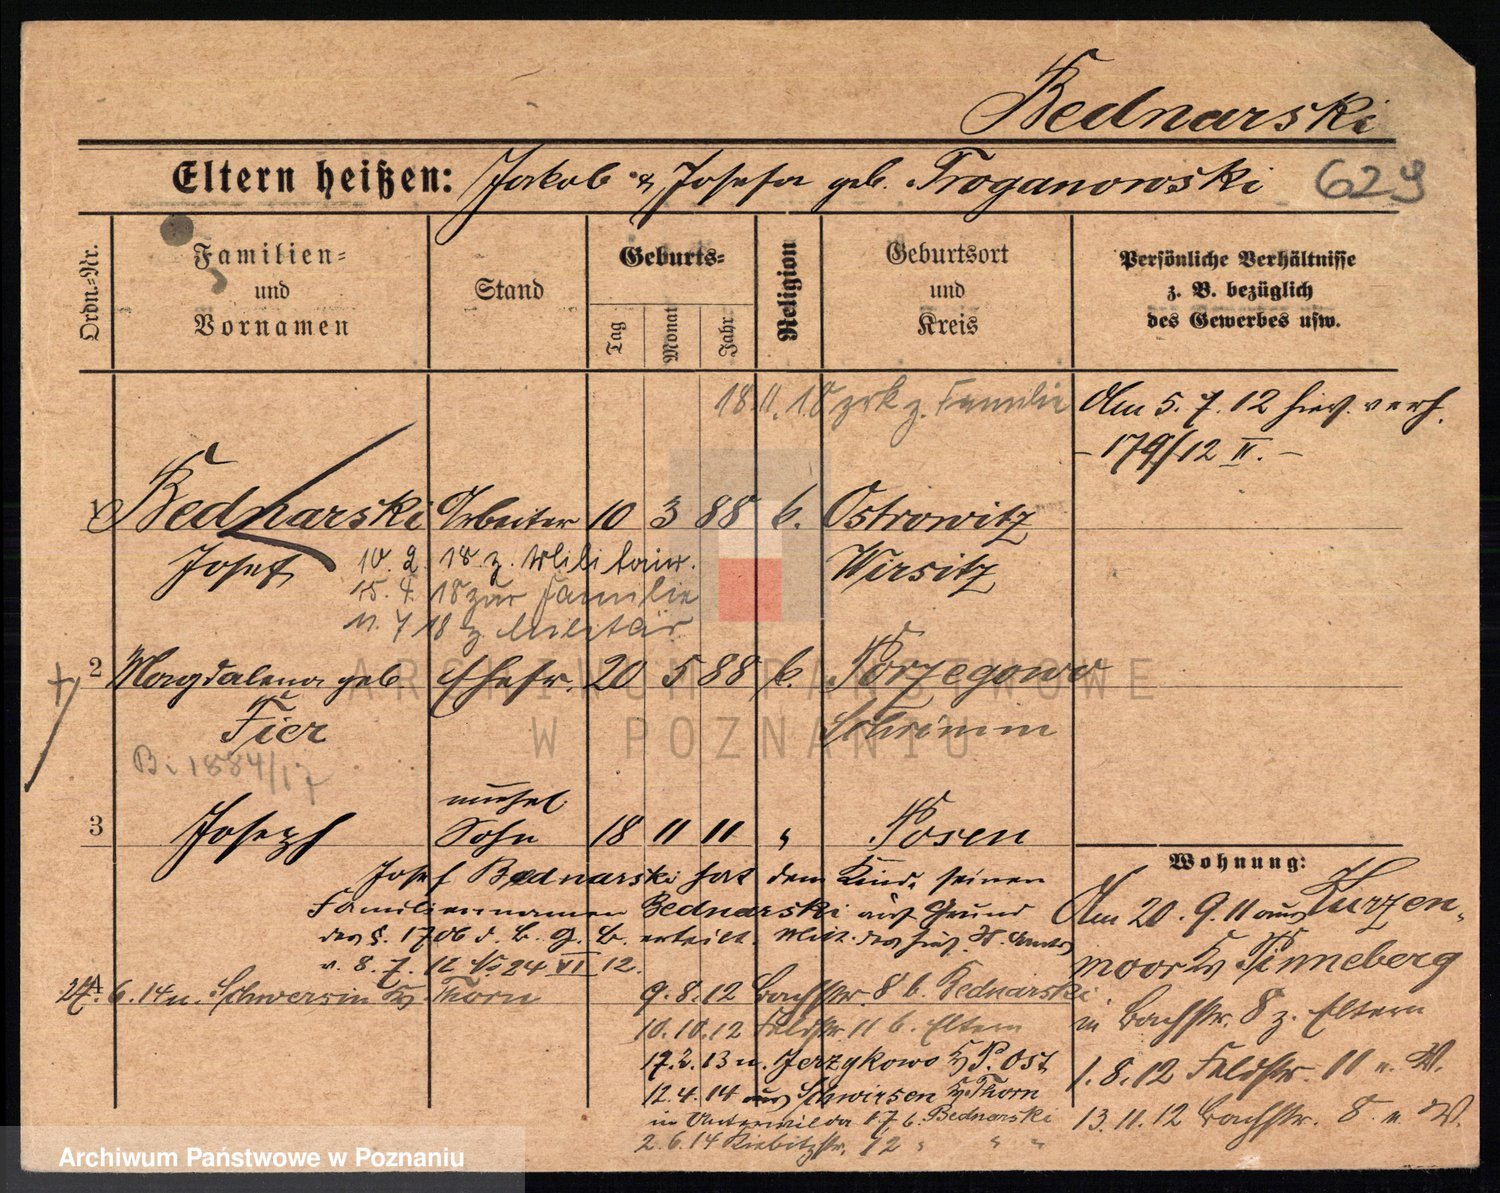 Bednarski
Eltern heißen: Jakob & Josefa geb. Troganowski 629
Ordn.-Nr.
Familien- und Vornamen
Stand
Geburts-
Tag Monat Jahr
Religion
Geburtsort und Kreis
Persönliche Verhältnisse z. B. bezüglich des Gewerbes usw.
18.11.18 zrk z. Familie
Am 5.7.12 hier verh.
- 179/12 II. -
1 Bednarski Arbeiter 10 3 88 k. Ostrowitz
Josef 10.2.18 z. Militair. Wirsitz
15.4.18 zur Familie
11.7.18 z Militär
2 Magdalena geb Ehefr. 20 5 88 k. Porzegowo
Fier Schrimm
B. 1884/17
unehel.
3 Joseph Sohn 18 11 11 " Posen
Josef Bednarski hat dem Kinde seinen
Familiennamen Bednarski auf Grund
des §. 1706 d. B. G. B. erteilt. Mitt. des
v. 8.7.12 No 24 VI 12.
27.6.14 n. Schwersin Kr Thorn
9.8.12 Bachstr. 8 b. Bednarski
10.10.12 Feldstr. 11 b. Eltern
17.2.13 n. Jerzykowo Kr P. Ost
12.4.14 aus Schwirsen Kr Thorn
in Unterwilda 17 b. Bednarski
2.6.14 Kiebitzstr. 12 " " "
Wohnung:
Am 20.9.11 aus Kurzen-
moor Kr Pinneberg
in Bachstr. 8 z. Eltern
1.8.12 Feldstr. 11 n. W.
13.11.12 Bachstr. 8 n. W.
ARCHIWUM PAŃSTWOWE
W POZNANIU
Archiwum Państwowe w Poznaniu